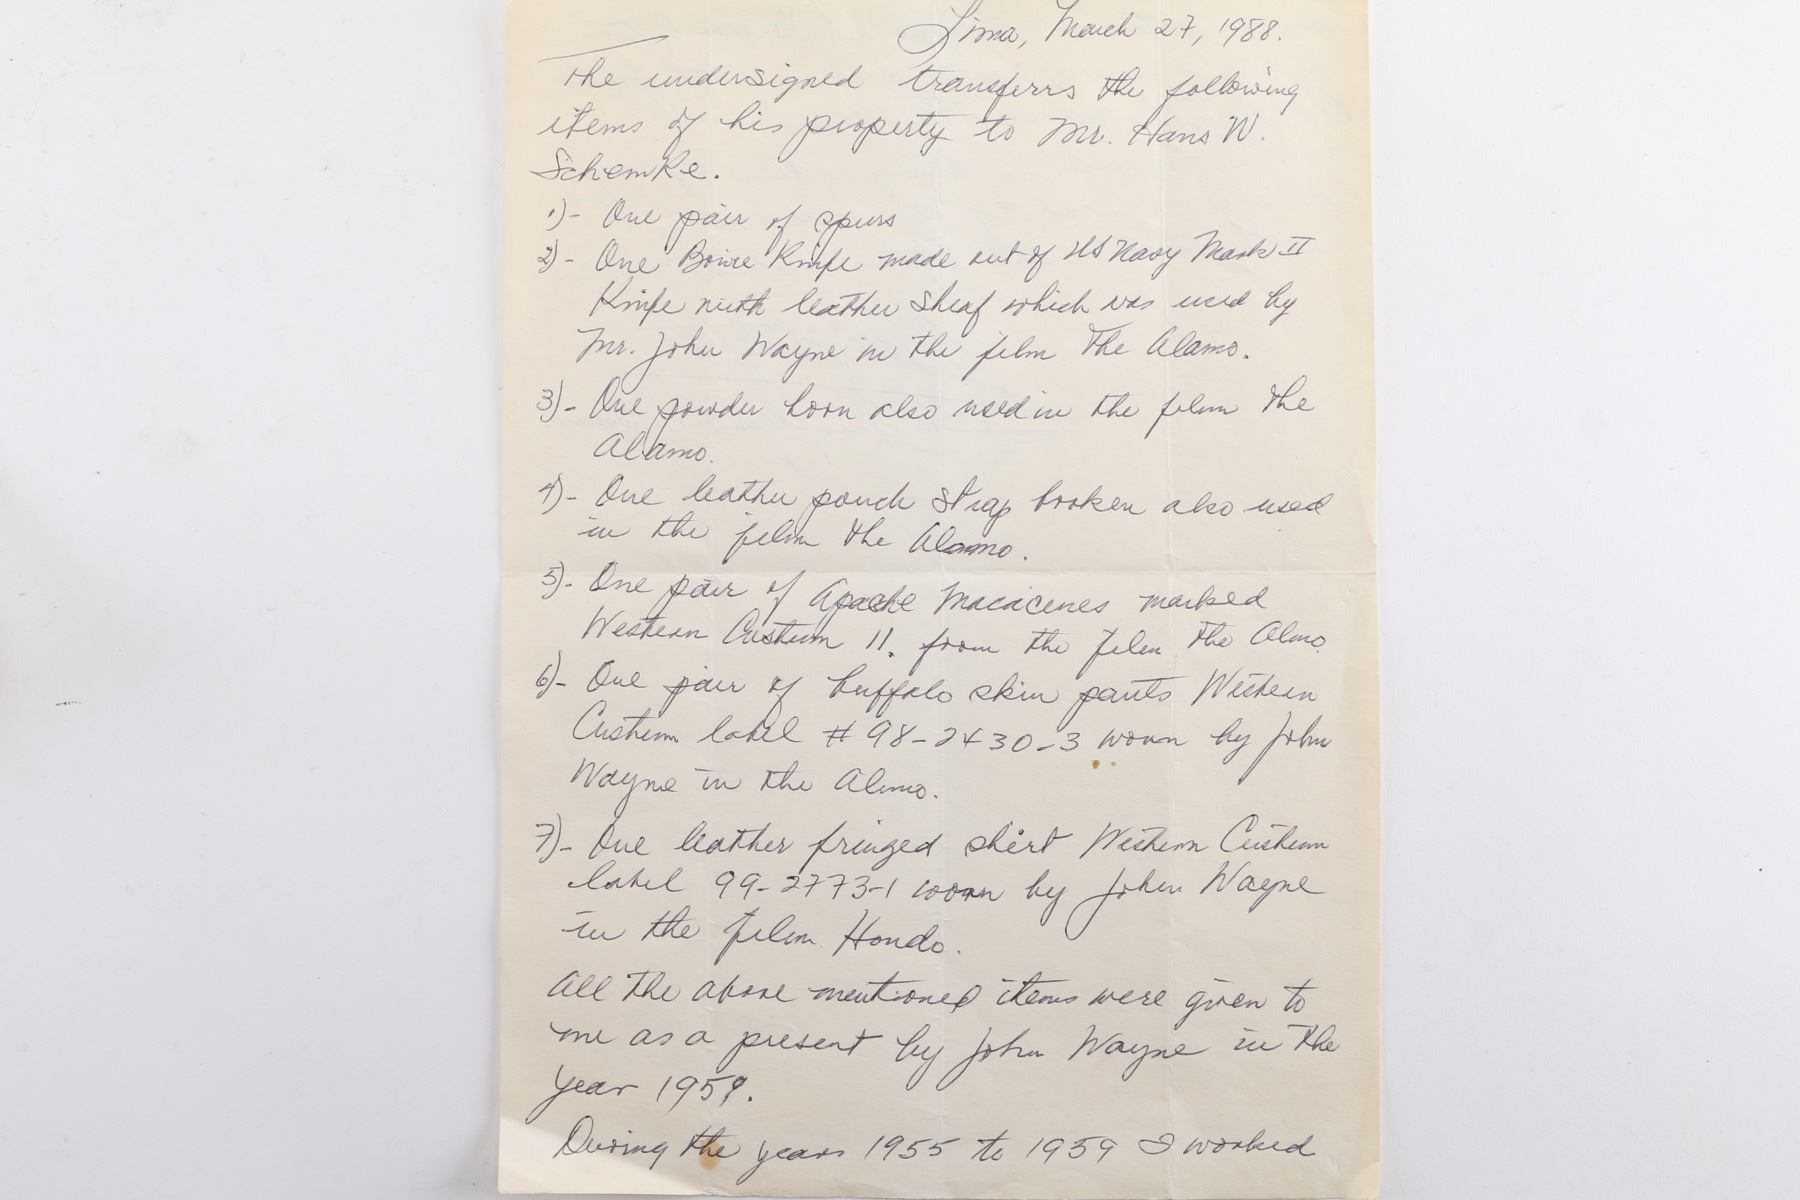 Lima, March 27, 1988.
The undersigned transferrs the following
items of his property to Mr. Hans W.
Schemke.
1)- One pair of spurs
2)- One Bowie Knife made out of US Navy Mark II
Knife with leather sheaf which was used by
Mr. John Wayne in the film The Alamo.
3)- One powder horn also used in the film The
Alamo.
4)- One leather pouch strap broken also used
in the film the Alamo.
5)- One pair of Apache Macacenes marked
Western Custum 11. from the film The Almo.
6)- One pair of buffalo skin pants Western
Custum label # 98-2430-3 worn by John
Wayne in the Alamo.
7)- One leather fringed shirt Western Custum
label 99-2773-1 worn by John Wayne
in the film Hondo.
All the above mentioned items were given to
me as a present by John Wayne in the
year 1959.
During the years 1955 to 1959 I worked